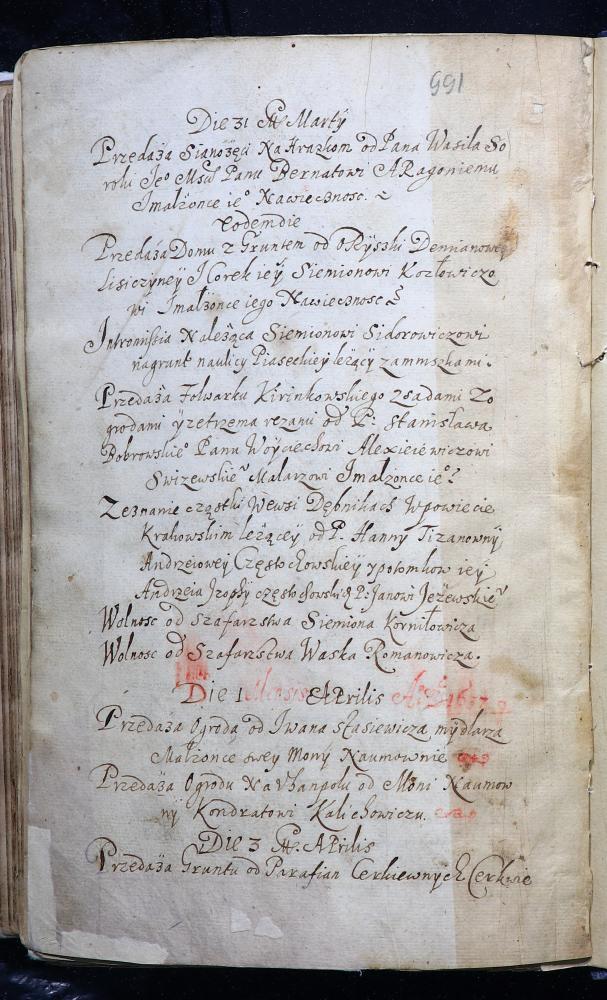 991
Die 31 Marty
Przedaża Sianożęci Na Hrazkom od Pana Wasila So
roki Je° Mści Panu Bernatowi ARagoniemu
Imalżonce ie° Nawieczność.
eodem die
Przedaża Domu z Gruntem od ORyszki Demianowey
Lisiczyney J Corek iey Siemionowi Kozłowiczo
wi Imalżonce iego Nawieczność
Intromissia Należąca Siemionowi Sidorowiczowi
nagrunt naulicy Piaseckiey leżący
Przedaża Folwarku Kirinkowskiego zsadami Zo
grodami yzetrzema rezami od P: Stanisława
Bobrowskie° Panu Woyciechowi Alexieiewiczowi
Swizewskie° Malarzowi Imalzonce ie°
Zeznanie cząstki Wewsi Dębnikach Wpowiecie
Krakowskim leżącey od P. Hanny Tizanowny
Andrzeiowey Częstochowskiey ypotomkow iey
Andrzeia Jzophy częstochowskich P: Janowi Jeżewskie°
Wolność od Szafarstwa Siemiona Korniłowicza
Wolność od Szafarstwa Waska Romanowicza.
Die 1 Mensis APrilis
Przedaża Ogroda od Iwana Stasiewicza mydlarza
Małżonce swey Mony Naumownie
Przedaża Ogrodu Na od Moni Naumow
ny Kondratowi Kalichowiczu.
Die 3 APrilis
Przedaża Gruntu od Parafian Cerkiewnych Cerkwie